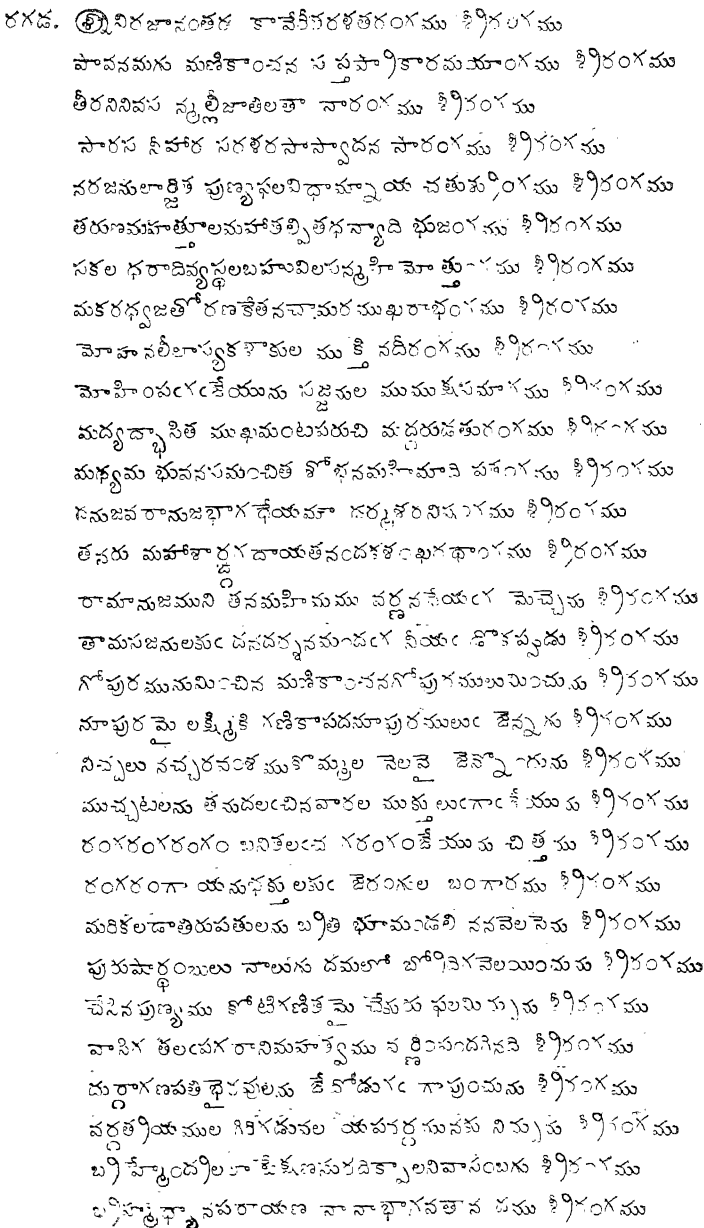 రగడ. శ్రీ నిరజానంతర కావేరీసరళతరంగము శ్రీరంగము
పావనమగు మణికాంచన సప్తప్రాకారమయాంగము శ్రీరంగము
తీరనినివస న్మల్లీజాతిలతా నారంగము శ్రీరంగము
సారస నీహార సరళరసాస్వాదన సారంగము శ్రీరంగము
నరజనులార్జిత పుణ్యఫలవిధామ్నాయ చతుశ్శృంగము శ్రీరంగము
తరుణమహత్తూలమహాతల్పితధన్యాది భుజంగము శ్రీరంగము
సకల ధరాదివ్యస్థలబహువిలసన్మహి మోత్తుంగము శ్రీరంగము
మకరధ్వజతోరణకేతనచామరముఖరాభంగము శ్రీరంగము
మోహనలీలాస్యకళాకుల ముక్తి నదీరంగము శ్రీరంగము
మోహింపఁగఁజేయును సజ్జనుల ముముక్షసమాగము శ్రీరంగము
మద్యద్భాసిత ముఖమంటపరుచి మద్గరుడతురంగము శ్రీరంగము
మధ్యమ భువనసమంచిత శోభనమహిమాని శ్రీరంగము
దనుజవరానుజభాగధేయమా శ్రీరంగము
తనరు మహాశార్ఙ్గగదాయతనందకశంఖరథాంగము శ్రీరంగము
రామానుజముని తనమహిమము వర్ణనసేయఁగ మెచ్చెను శ్రీరంగము
తామసజనులకుఁ దనదర్శనమందఁగ నీయఁ డొకప్పుడు శ్రీరంగము
గోపురమునుమించిన మణికాంచనగోపురములుమించును శ్రీరంగము
నూపురమై లక్ష్మికి గణికాపదనూపురములుఁ జెన్నగు శ్రీరంగము
నిచ్చలు నచ్చరవంశముకొమ్మల నెలవై జెన్నొందును శ్రీరంగము
ముచ్చటలను తనుదలఁచినవారల ముక్తులుఁగాఁజేయును శ్రీరంగము
రంగరంగరంగం బనితలఁచ గరంగంజేయును చిత్తము శ్రీరంగము
రంగరంగా యనుభక్తులకుఁ జెరంగుల బంగారము శ్రీరంగము
మరికలడాతిరుపతులను బ్రతి భూమండలి ననవెలసెను శ్రీరంగము
పురుషార్థంబులు నాలుగు దమలో బ్రోదిగవెలయించును శ్రీరంగము
చేసినపుణ్యము కోటిగణితమై చేకురు ఫలమిచ్చును శ్రీరంగము
వాసిగ తలఁపగరానిమహత్వము వర్ణింపందగినది శ్రీరంగము
దుర్గాగణపతి భైరవులను జేదోడుగఁ గాపుంచును శ్రీరంగము
వర్గత్రయముల గిరిగడునల యపవర్గమునకు నిచ్చును శ్రీరంగము
బ్రహ్మేంద్రులకా దిక్పాలనివాసంబగు శ్రీరంగము
బ్రహ్మధ్యానపరాయణ నానాభాగవతావనము శ్రీరంగము